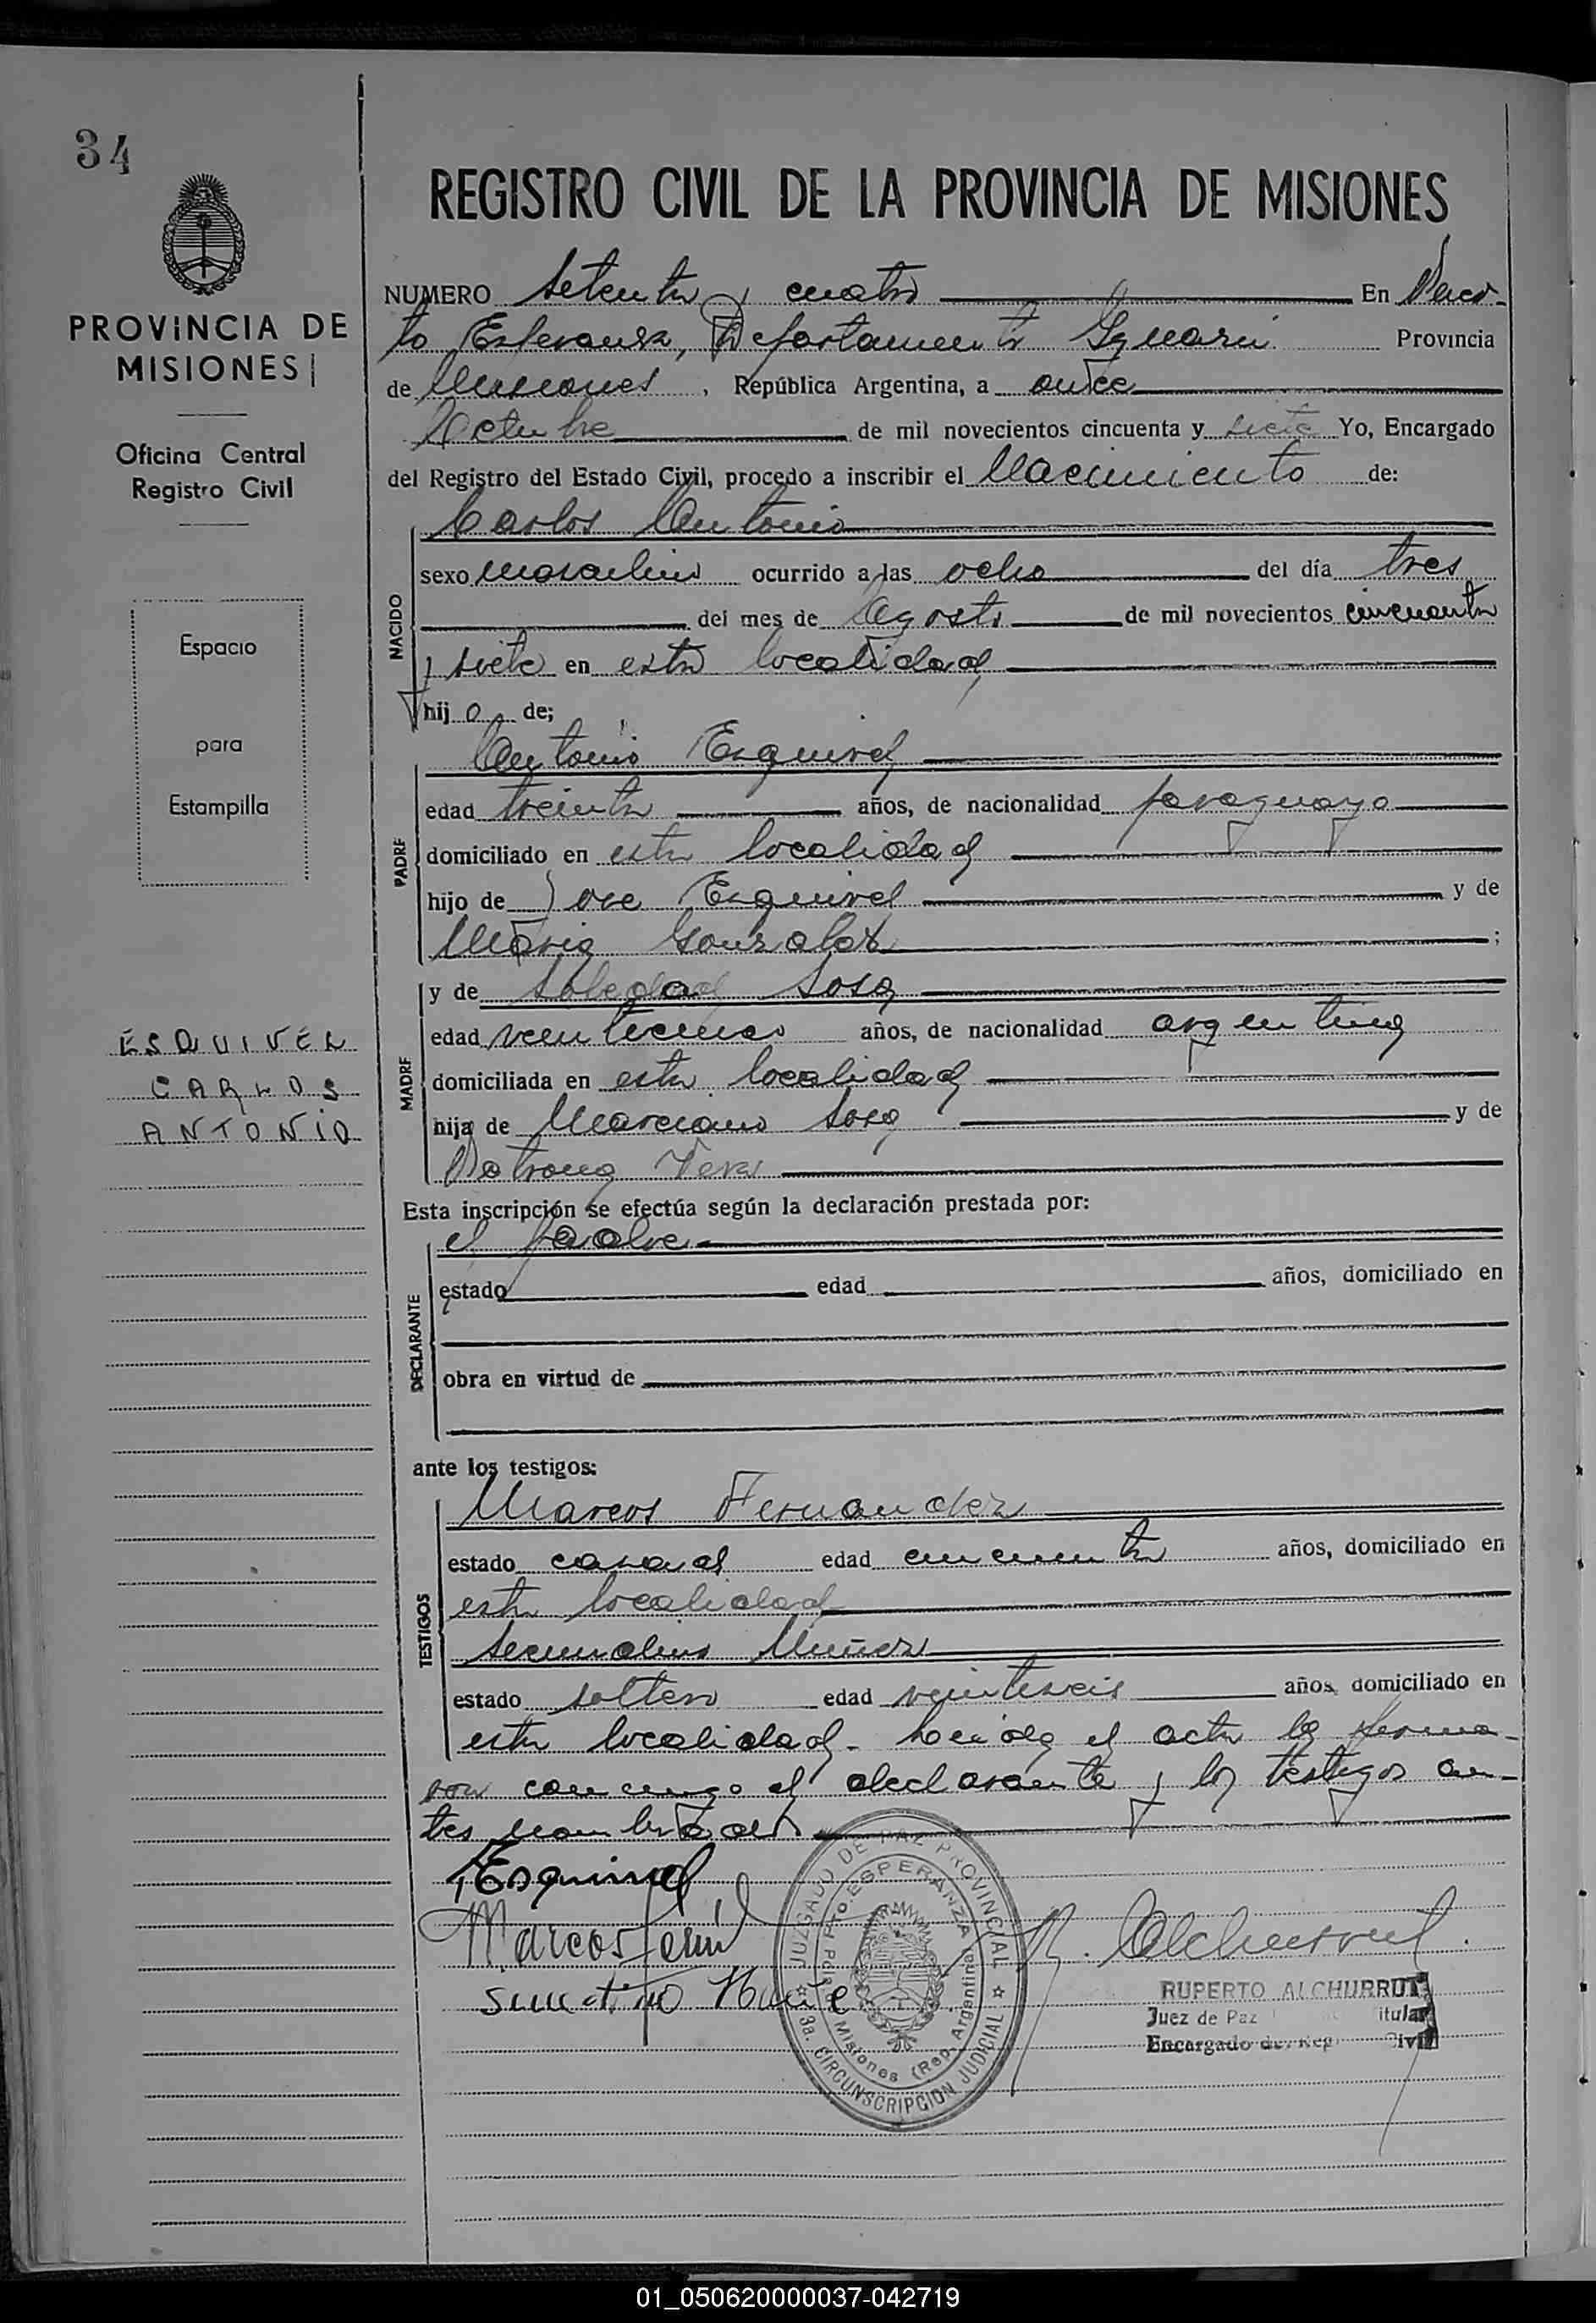 34
PROVINCIA DE
MISIONES
Oficina Central
Registro Civil
Espacio
para
Estampilla
ESQUIVEL
CARLOS
ANTONIO
REGISTRO CIVIL DE LA PROVINCIA DE MISIONES
NUMERO Setenta y cuatro En Puer-
to Esperanza, Departamento Iguazú Provincia
de Misiones, República Argentina, a once
Octubre de mil novecientos cincuenta y siete Yo, Encargado
del Registro del Estado Civil, procedo a inscribir el Nacimiento de:
NACIDO
Carlos Antonio
sexo masculino ocurrido a las ocho del día tres
del mes de Agosto de mil novecientos cincuenta
y siete en esta localidad
hijo de;
PADRE
Antonio Esquivel
edad treinta años, de nacionalidad paraguayo
domiciliado en esta localidad
hijo de José Esquivel y de
María Gonzalez;
MADRE
y de Soledad Sosa
edad veinticinco años, de nacionalidad argentina
domiciliada en esta localidad
hija de Marciano Sosa y de
Petrona Vera
Esta inscripción se efectúa según la declaración prestada por:
DECLARANTE
el padre
estado edad años, domiciliado en
obra en virtud de
ante los testigos:
TESTIGOS
Marcos Fernandez
estado casado edad cincuenta años, domiciliado en
esta localidad
Secundino Muñez
estado soltero edad veintiseis años, domiciliado en
esta localidad. Leída el acta la firma-
ron conmigo el declarante y los testigos an-
tes nombrados
Esquivel
Marcos Fern
JUZGADO DE PAZ PROVINCIAL
Pto. ESPERANZA
Misiones (Rep. Argentina)
3a. CIRCUNSCRIPCION JUDICIAL
R. Alchurrut
RUPERTO ALCHURRUT
Juez de Paz itular
Encargado del Reg. Civil
01_050620000037-042719